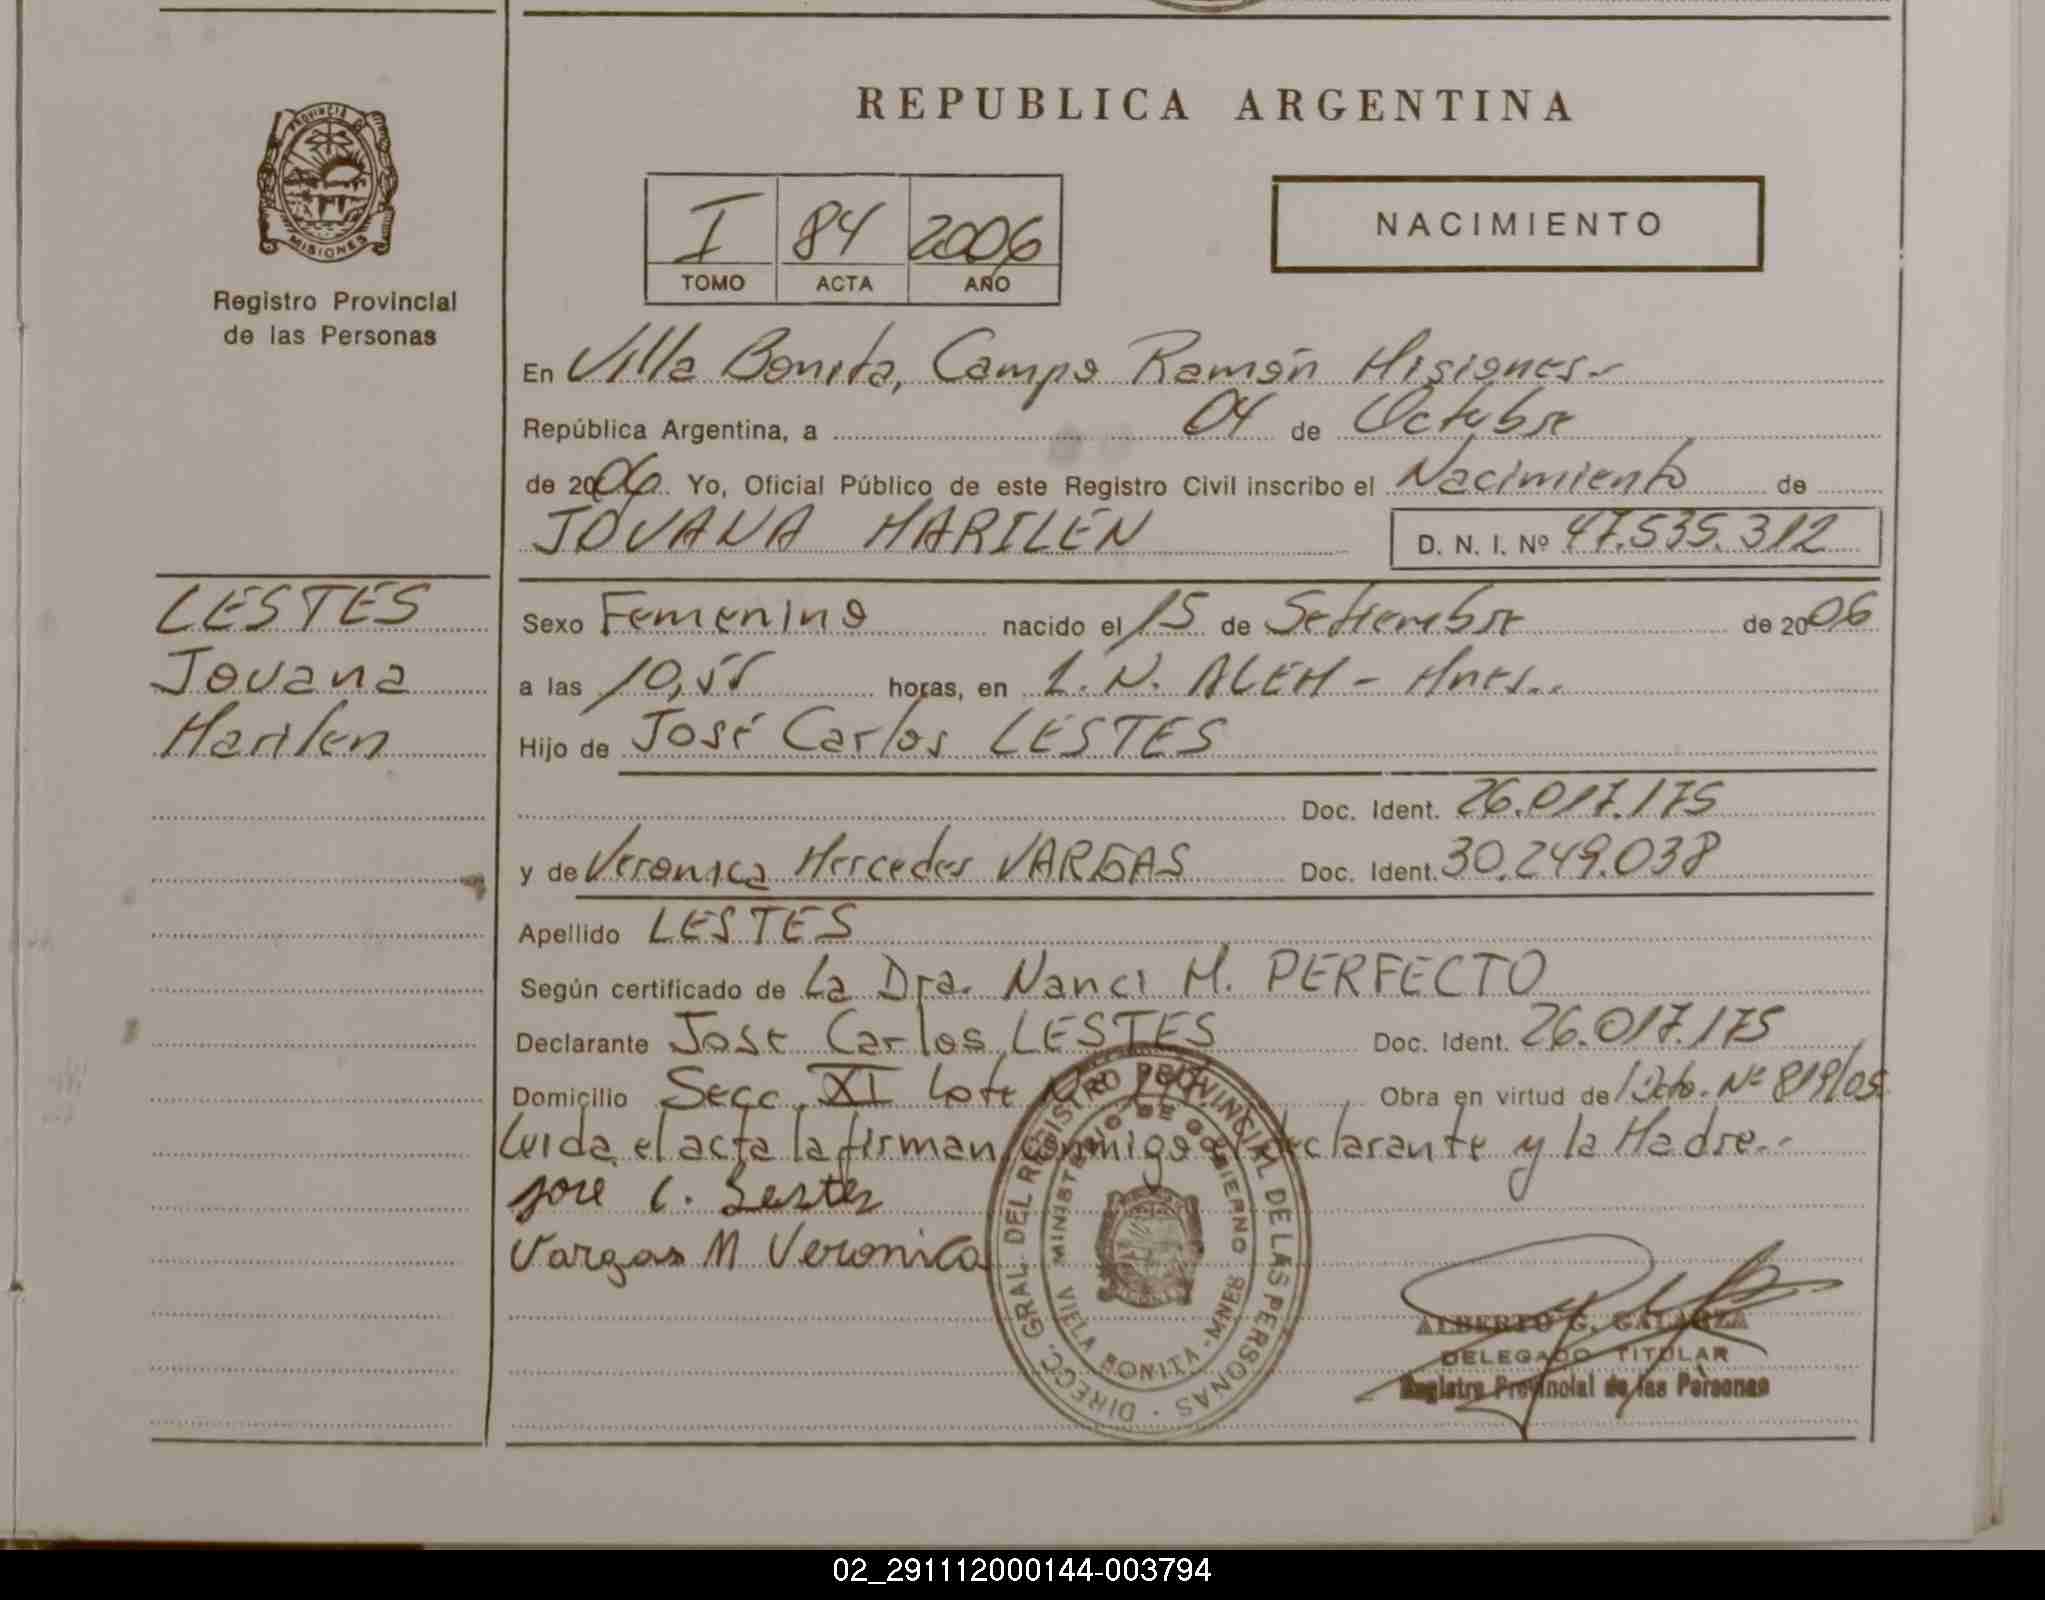 REPUBLICA ARGENTINA
PROVINCIA DE MISIONES
Registro Provincial
de las Personas
I 84 2006
TOMO ACTA AÑO
NACIMIENTO
En Villa Bonita, Campo Ramón Misiones.-
República Argentina, a 04 de Octubre
de 2006 Yo, Oficial Público de este Registro Civil inscribo el Nacimiento de
JOVANA MARILEN D. N. I. Nº 47.535.312
LESTES
Jovana
Marilen
Sexo Femenino nacido el 15 de Setiembre de 2006
a las 10,55 horas, en L. N. ALEM - Mnes..
Hijo de José Carlos LESTES
Doc. Ident. 26.017.175
y de Veronica Mercedes VARGAS Doc. Ident. 30.249.038
Apellido LESTES
Según certificado de La Dra. Nanci M. PERFECTO
Declarante Jose Carlos LESTES Doc. Ident. 26.017.175
Domicilio Secc. XI Lote Obra en virtud de Dcto. Nº 819/05
Leida el acta la firman conmigo el declarante y la Madre.-
Jose C. Lestes
Vargas M Veronica
DIRECC. GRAL. DEL REGISTRO PROVINCIAL DE LAS PERSONAS
MINISTERIO DE GOBIERNO
VILLA BONITA - MNES
ALBERTO G. GALARZA
DELEGADO TITULAR
Registro Provincial de las Personas
02_291112000144-003794